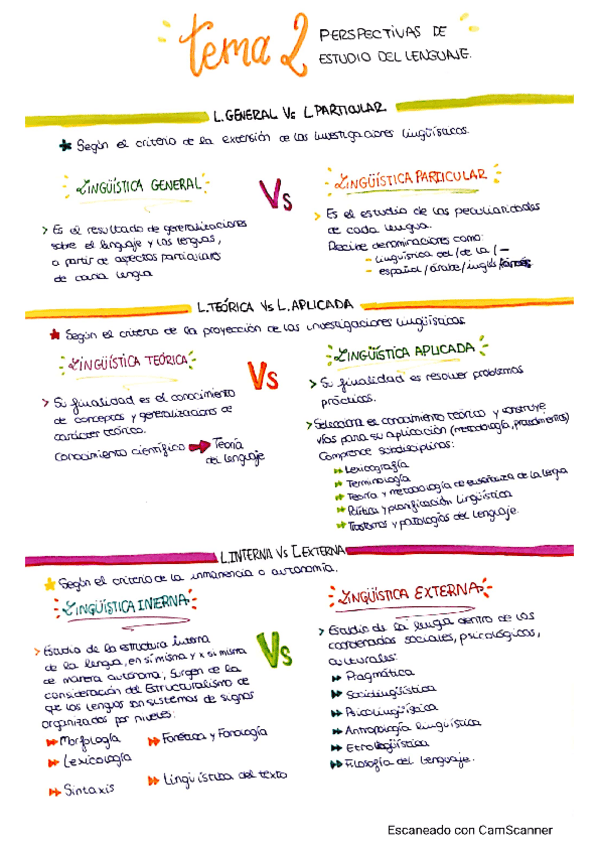 tema 2 PERSPECTIVAS DE
ESTUDIO DEL LENGUAJE.
L.GENERAL Vs L.PARTICULAR
Según el criterio de la extensión de las investigaciones lingüísticas.
LINGÜÍSTICA GENERAL
Vs
LINGÜÍSTICA PARTICULAR
> Es el resultado de generalizaciones
sobre el lenguaje y las lenguas,
a partir de aspectos particulares
de cada lengua
> Es el estudio de las peculiaridades
de cada lengua.
Recibe denominaciones como:
- lingüística del/de la/-
- español/árabe/inglés
L.TEÓRICA Vs L.APLICADA
Según el criterio de la proyección de las investigaciones lingüísticas
LINGÜÍSTICA TEÓRICA
Vs
LINGÜÍSTICA APLICADA
> Su finalidad es el conocimiento
de conceptos y generalizaciones de
carácter teórico.
Conocimiento científico → Teoría
del lenguaje
> Su finalidad es resolver problemas
prácticos.
> Selecciona el conocimiento teórico y construye
vías para su aplicación (metodología, procedimientos)
Comprende subdisciplinas:
Lexicografía
Terminología
Teoría y metodología de enseñanza de la lengua
Política y planificación lingüística
Trastornos y patologías del lenguaje.
L.INTERNA Vs L.EXTERNA
Según el criterio de la inmanencia o autonomía.
LINGÜÍSTICA INTERNA
Vs
LINGÜÍSTICA EXTERNA
> Estudio de la estructura interna
de la lengua, en sí misma y x sí misma
de manera autónoma, surgen de la
consideración del Estructuralismo de
que las lenguas son sistemas de signos
organizados por niveles:
Morfología
Fonética y Fonología
Lexicología
Sintaxis
Lingüística del texto
> Estudio de la lengua dentro de las
coordenadas sociales, psicológicas,
culturales:
Pragmática
Sociolingüística
Psicolingüística
Antropología lingüística
Etnolingüística
Filosofía del lenguaje.
Escaneado con CamScanner